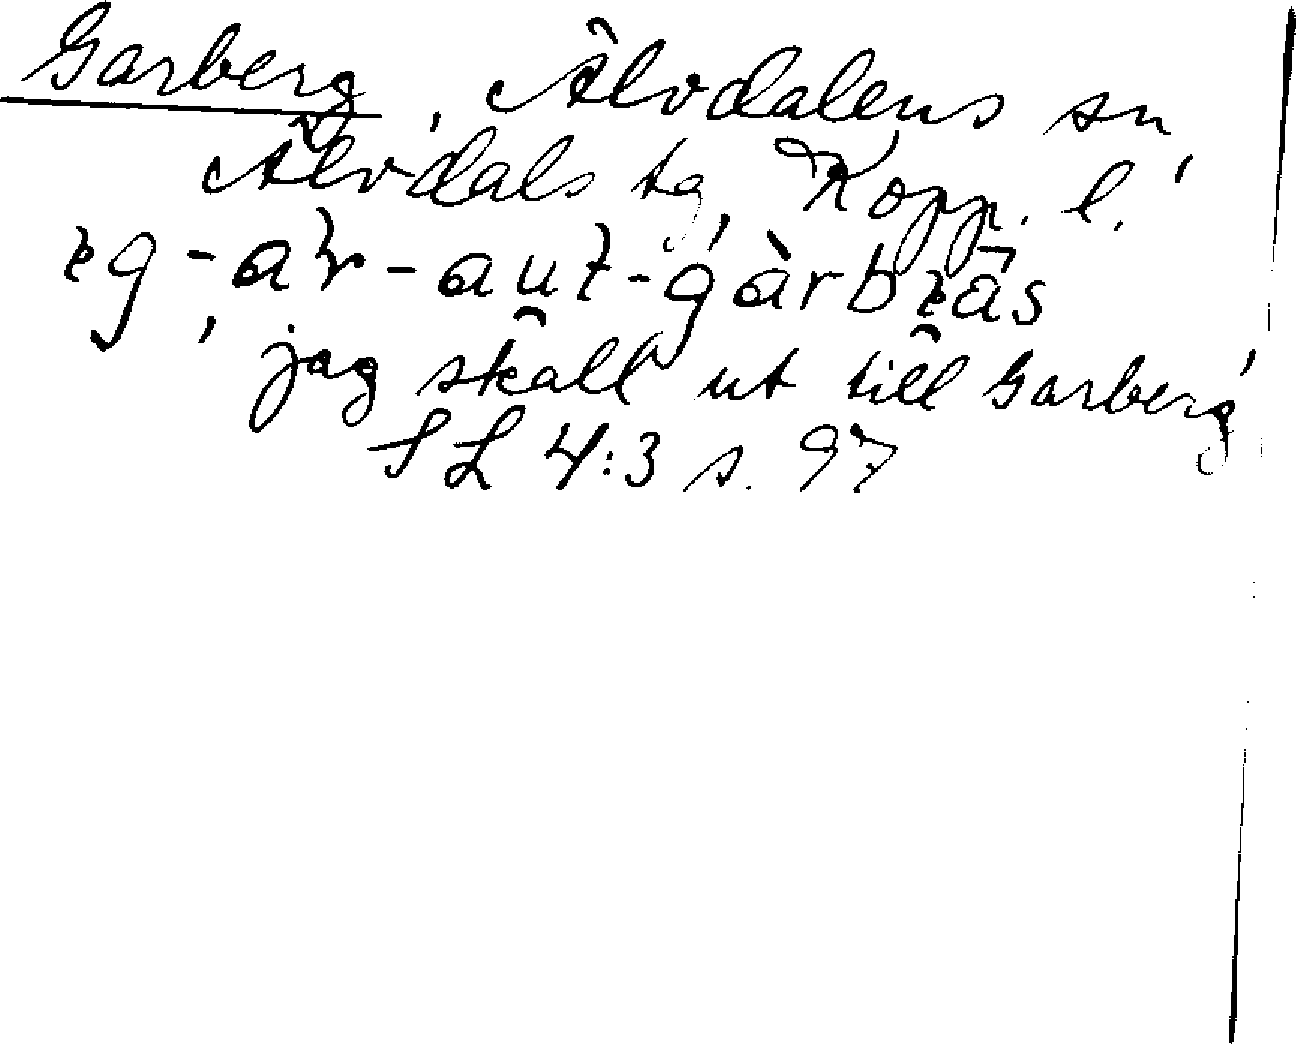 Garberg, Älvdalens sn,
Älvdals tg, Kopp. l.
'jag skall ut till Garberg'
SL 4:3 s. 97